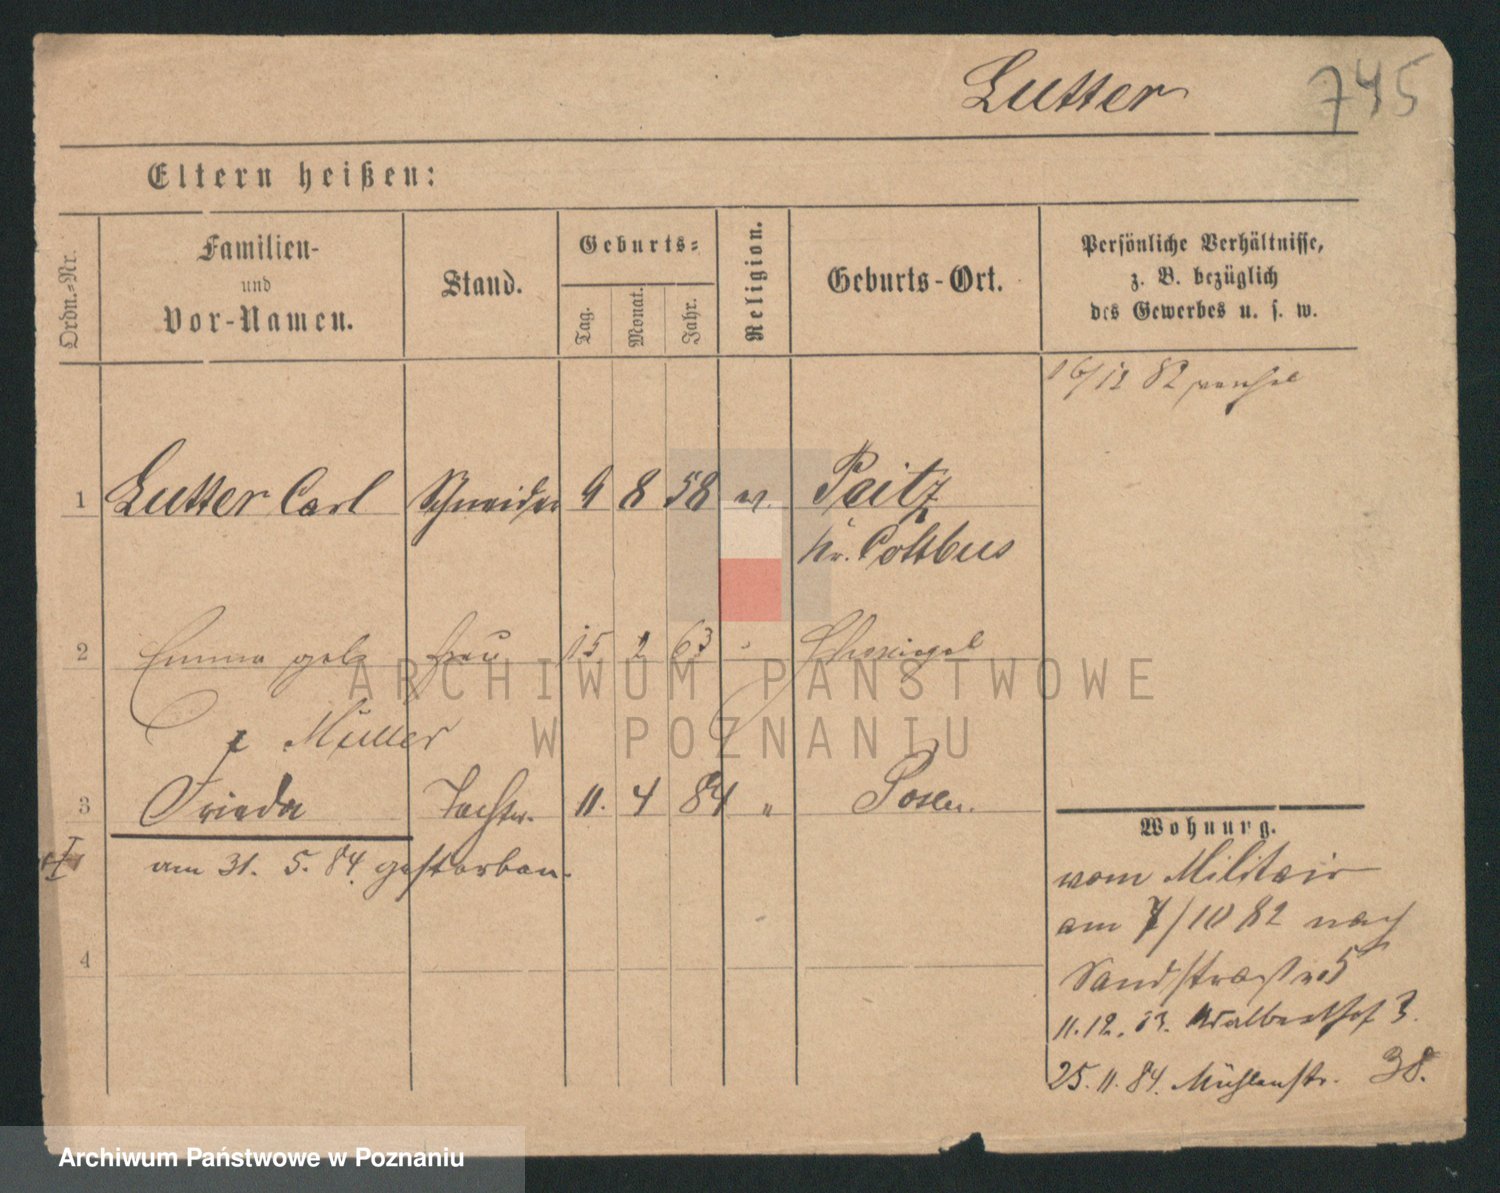 Lutter 745
Eltern heißen:
Ordn.-Nr.
Familien-
und
Vor-Namen.
Stand.
Geburts-
Tag.
Monat.
Jahr.
Religion.
Geburts-Ort.
Persönliche Verhältnisse,
z. B. bezüglich
des Gewerbes u. s. w.
16/12 82
1 Lutter Carl Schneider 9 8 58 ev. Peitz
Kr. Cottbus
2 Emma geb Frau 15 2 63
Müller
3 Frieda Tochter. 11. 4 84 " Posen.
am 31. 5. 84 gestorben.
4
Wohnung.
vom Militair
am 7/10 82 nach
Sandstraße No 5
11.12.83. 3.
25.11.84. Mühlenstr. 38.
ARCHIWUM PAŃSTWOWE
W POZNANIU
Archiwum Państwowe w Poznaniu